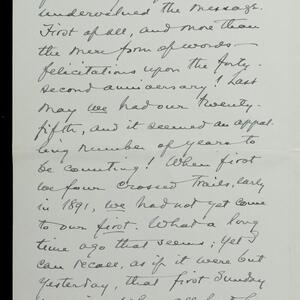 undervalued the message.
First of all, and more than
the mere form of words—
felicitations upon the forty-
second anniversary! Last
May we had our twenty-
fifth, and it seemed an appal-
ling number of years to
be counting! When first
we four crossed trails, early
in 1891, we had not yet come
to our first. What a long
time ago that seems; yet I
can recall, as if it were but
yesterday, that first Sunday